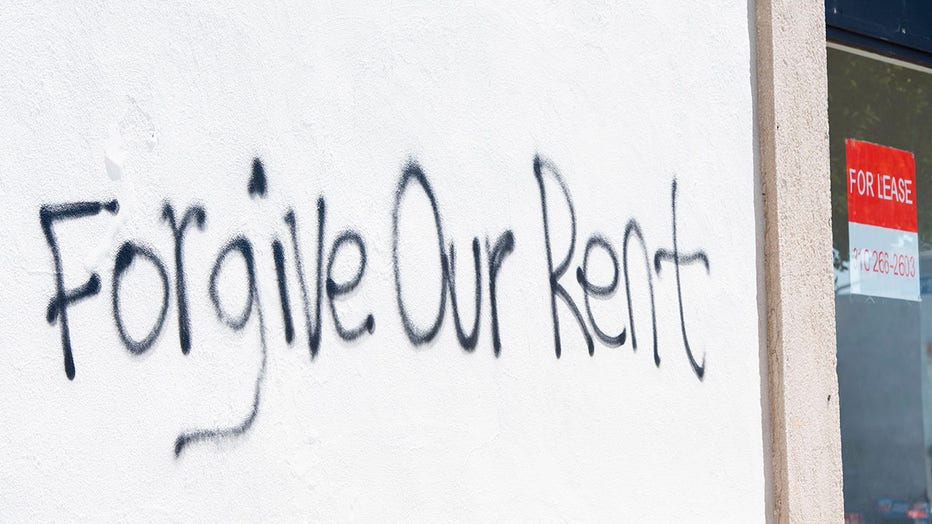 Forgive Our Rent
FOR LEASE
310 266-2603